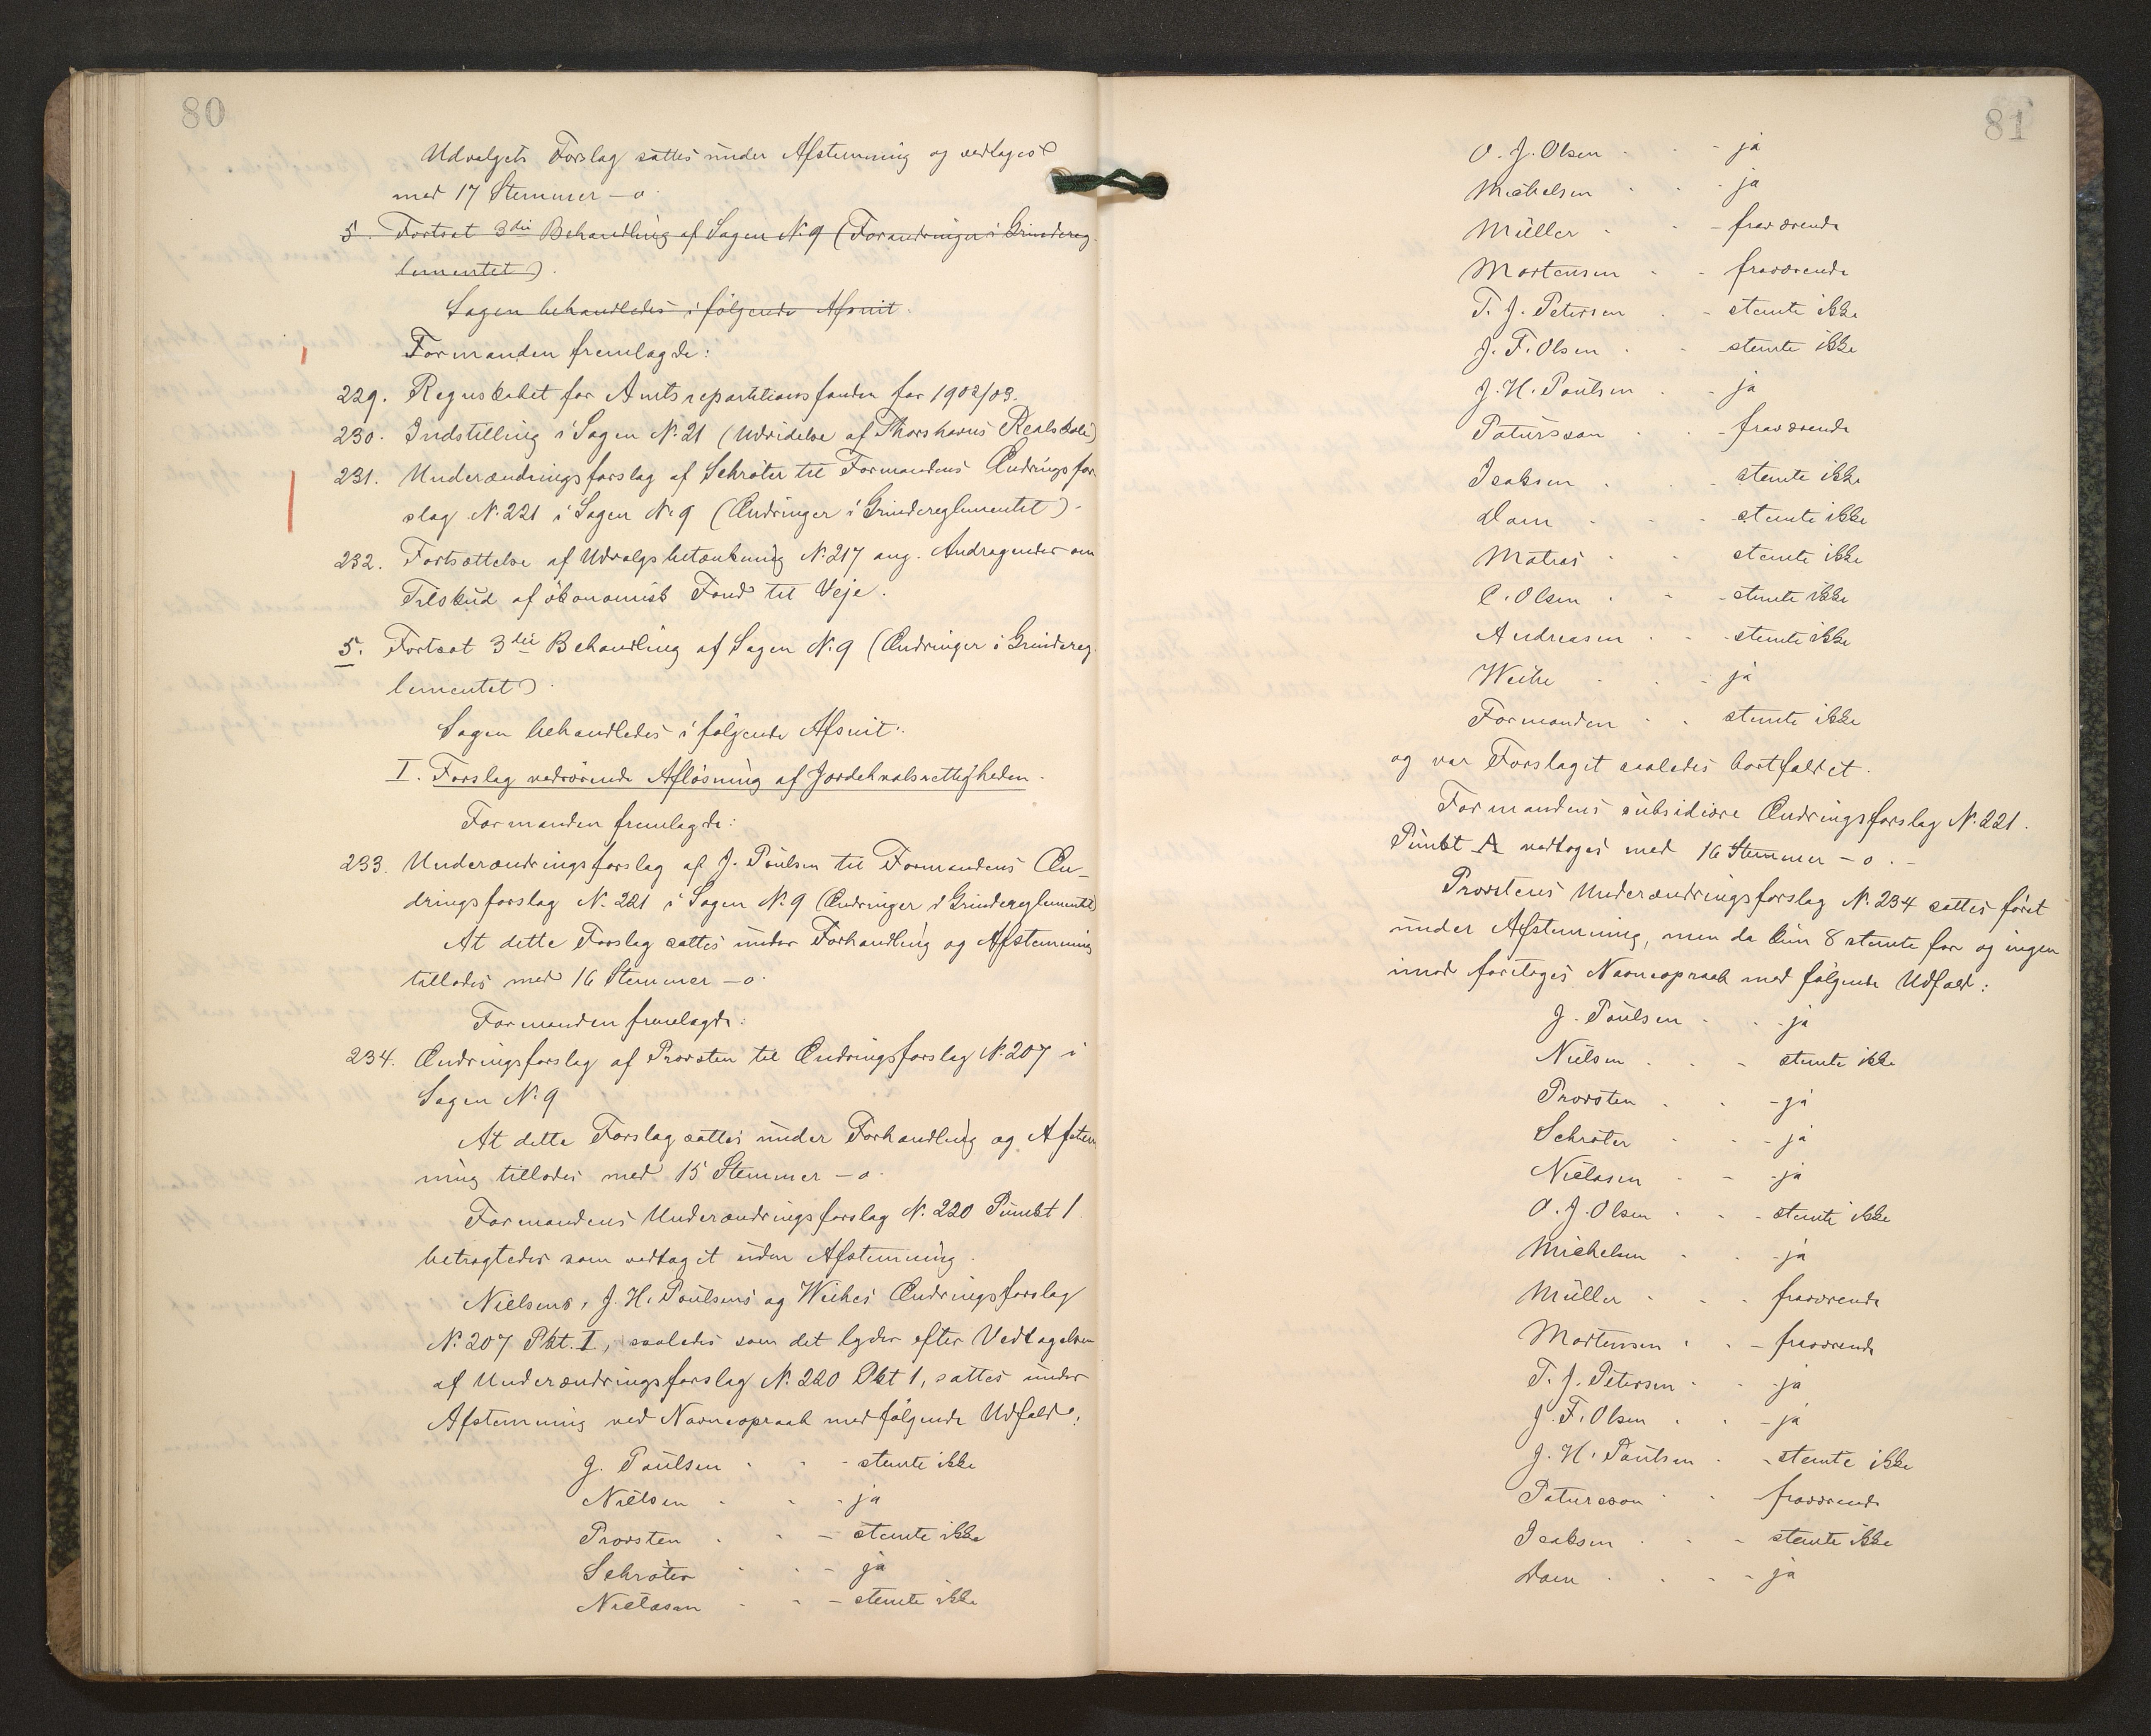 80
Udvalgets Forslag sattes under Afstemning og vedtoges
med 17 Stemmer – o.
5. Fortsat 3die Behandling af Sagen N. 9 (Forandringer i Grindereg-
lementet).
Sagen behandledes i følgende Afsnit.
Formanden fremlagde:
229. Regnskabet for Amtsrepartitionsfonden for 1902/03.
230. Indstilling i Sagen N. 21 (Udvidelse af Thorshavns Realskole)
231. Underændringsforslag af Schrøter til Formandens Ændringsfor-
slag N. 221 i Sagen N. 9 (Ændringer i Grindereglementet).
232. Fortsættelse af Udvalgsbetænkning N. 217 ang. Andragender om
Tilskud af økonomisk Fond til Veje.
5. Fortsat 3die Behandling af Sagen N. 9 (Ændringer i Grindereg-
lementet).
Sagen behandledes i følgende Afsnit:
I. Forslag vedrørende Afløsning af Jordehvalsrettigheden.
Formanden fremlagde:
233. Underændringsforslag af J. Poulsen til Formandens Æn-
dringsforslag N. 221 i Sagen N. 9 (Ændringer i Grindereglementet)
At dette Forslag sattes under Forhandling og Afstemning
tillodes med 16 Stemmer – o.
Formanden fremlagde:
234. Ændringsforslag af Provsten til Ændringsforslag N. 207 i
Sagen N. 9
At dette Forslag sattes under Forhandling og Afstem-
ning tillodes med 15 Stemmer – o.
Formandens Underændringsforslag N. 220 Punkt 1.
betragtedes som vedtaget uden Afstemning.
Nielsens, J. H. Poulsens og Weihes Ændringsforslag
N. 207 Pkt. I, saaledes som det lyder efter Vedtagelsen
af Underændringsforslag N. 220 Pkt 1, sattes under
Afstemning ved Navneopraab med følgende Udfald:
J. Poulsen - - stemte ikke
Nielsen - - ja
Provsten - - stemte ikke
Schrøter - - ja
Niclasen - - stemte ikke
81
O. J. Olsen - - ja
Michelsen - - ja
Müller - - fraværende
Mortensen - - fraværende
T. J. Petersen - - stemte ikke
J. F. Olsen - - stemte ikke
J. H. Poulsen - - ja
Patursson - - fraværende
Isaksen - - stemte ikke
Dam - - stemte ikke
Matras - - stemte ikke
C. Olsen - - stemte ikke
Andreasen - - stemte ikke
Weihe - - ja
Formanden - - stemte ikke
og var Forslaget saaledes bortfaldet.
Formandens subsidiære Ændringsforslag N. 221.
Punkt A vedtoges med 16 Stemmer – o. –
Provstens Underændringsforslag N. 234 sattes først
under Afstemning, men da kun 8 stemte for og ingen
imod foretoges Navneopraab med følgende Udfald:
J. Poulsen - - ja
Nielsen - - stemte ikke
Provsten - - ja
Schrøter - - ja
Niclasen - - ja
O. J. Olsen - - stemte ikke
Michelsen - - ja
Müller - - fraværende
Mortensen - - fraværende
T. J. Petersen - - ja
J. F. Olsen - - ja
J. H. Poulsen - - stemte ikke
Patursson - - fraværende
Isaksen - - stemte ikke
Dam - - ja